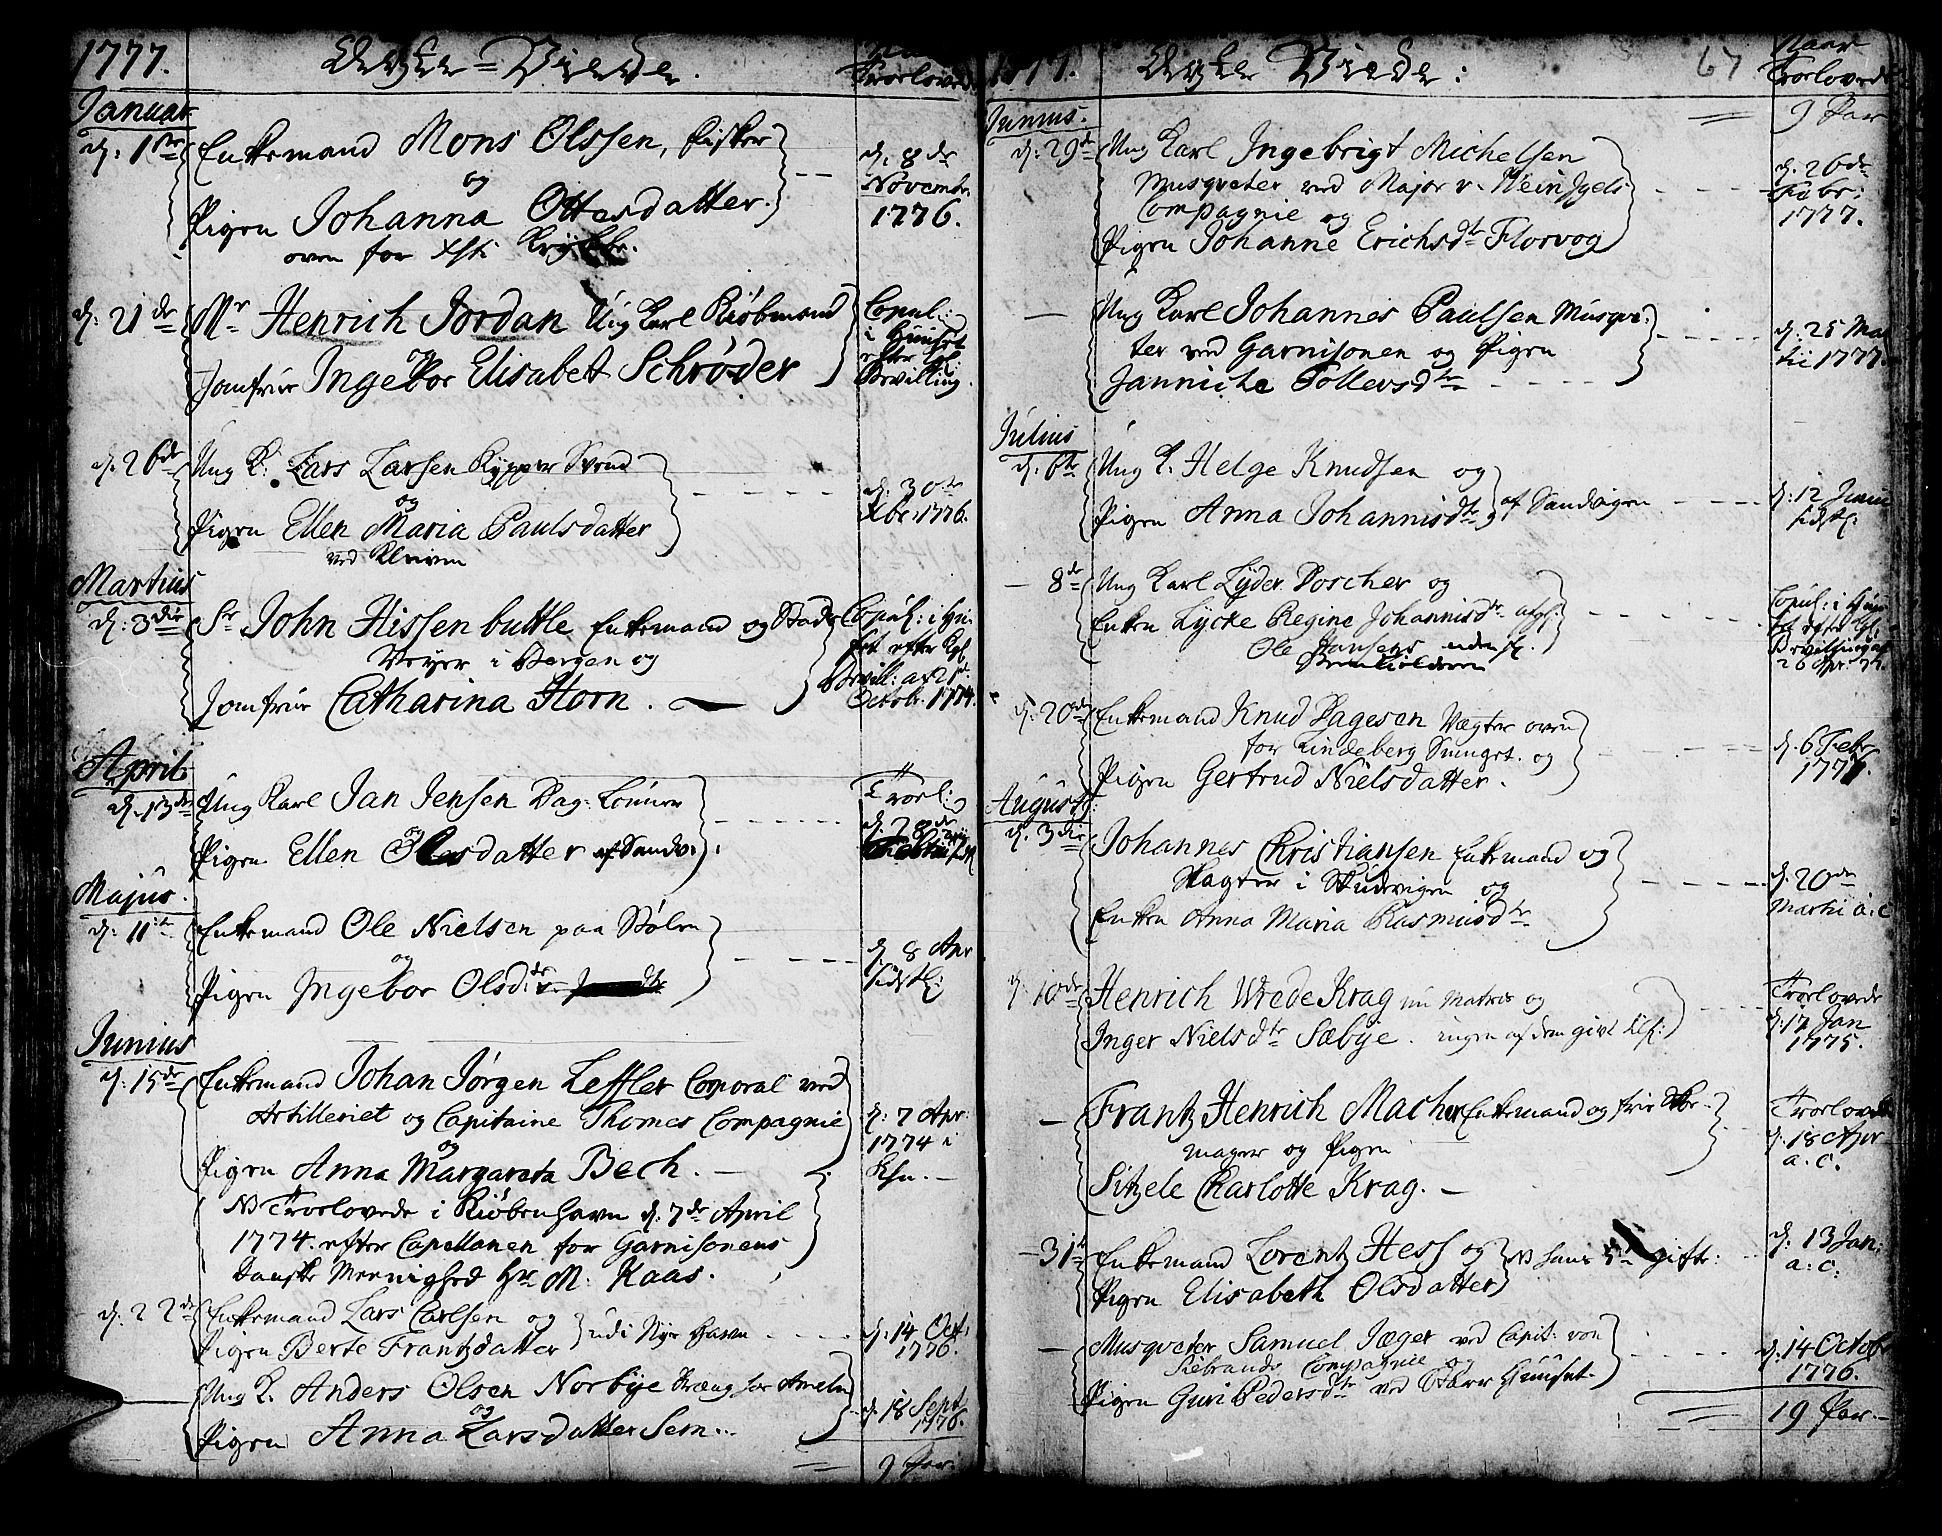 1777.
Ægte-Viede.
Trolovede
Januar
d: 1ste Enkemand Mons Olssen, Fisker
og
Pigen Johanna Ottesdatter.
oven for
d. 8de
Novembr.
1776.
d: 21de Mr Henrich Jordan Ung Karl Kiøbmand
og
Jomfrue Ingebor Elisabet Schrøder
Copul:
i Huuset
efter kgl.
Bevilling.
d. 26de Ung K: Lars Larsen Kypper Svend
og
Pigen Ellen Maria Paulsdatter
ved Kleiven
d. 30te
Xbr. 1776.
Martius
d: 3die Sr John Hissenbuttle Enkemand og Stads
Veyer i Bergen og
Jomfrue Catharina Horn.
Copul: i Hu-
set efter Kgl.
Bevill: af 21de
Octobr. 1774.
April
d. 13de Ung Karl Jan Jensen Dag-Lønner
og
Pigen Ellen Olesdatter af Sandv:
Troel:
d. 28de
Majus.
d: 11te Enkemand Ole Nielsen paa Stølen
og
Pigen Ingebor Olsdtr
d. 8 Apr
sidstl:
Junius
d: 15de Enkemand Johan Jørgen Leffler Corporal ved
Artilleriet og Capitaine Thomes Compagnie
og
Pigen Anna Margareta Bech.
NB Troelovede i Kiøbenhavn d. 7de April
1774. efter Capellanen for Garnisonens
Danske Meenighed Hr M. Kaas.
d. 7 Apr:
1774 i
Khn.
d: 22de Enkemand Lars Carlsen og
Pigen Berte Frantzdatter udi Nye Havn
d. 14 Oct:
1776.
Ung K. Anders Olsen Norbye
og
Pigen Anna Larsdatter Sem.
d. 18 Sept
1776.
9 Par.
1777.
Ægte Viede:
67
Naar
Trolovede
9 Par
Junius.
d: 29de Ung Karl Ingebrigt Michelsen
Musqveter ved Major v. Weinigels
Compagnie og
Pigen Johanne Erichsdtr Florvog
d. 26de
Febr:
1777.
Ung Karl Johannes Paulsen Musqve-
ter ved Garnisonen og Pigen
Janniche Tollersdtr
d. 25 Mar
tii 1777.
Julius
d. 6te Ung K. Helge Knudsen og
Pigen Anna Johannisdtr af Sandvigen
d: 12 Junii
sidstl:
8de Ung Karl Lyder Poscher og
Enken Lycke Regine Johannisdtr afgl:
Ole Hansens
Copul: i Huu-
set efter Kgl.
Bevilling af
26 Apr. 77.
d: 20de Enkemand Knud Dagesen Vægter oven
for Lindeberg Smuget. og
Pigen Gertrud Nielsdatter.
d. 6 Febr
1777.
August:
d. 3die Johannes Christiansen Enkemand og
Slagter i Skudevigen og
Enken Anna Maria Rasmusdtr
d. 20de
Martii a: c
d. 10de Henrich Wrede Krag nu Matros og
Inger Nielsdtr Sæbye. ingen af dem givt tilf:
Troelovede
d: 17 Jan
1775.
Frantz Henrich Macher Enkemand og frie Skoe-
mager og Pigen
Sitzele Charlotte Krag.
Troelovede
d. 18 Apr
a. c.
31te Enkemand Lorentz Hess og NB hans 5te gifte:
Pigen Elisabeth Olsdatter
d. 13 Jan:
a: c:
Musqveter Samuel Jæger ved Capit: von
Siebrands Compagnie og
Pigen Guri Pedersdtr ved Stærr Huuset.
d. 14 Octobr
1776.
19 Par.